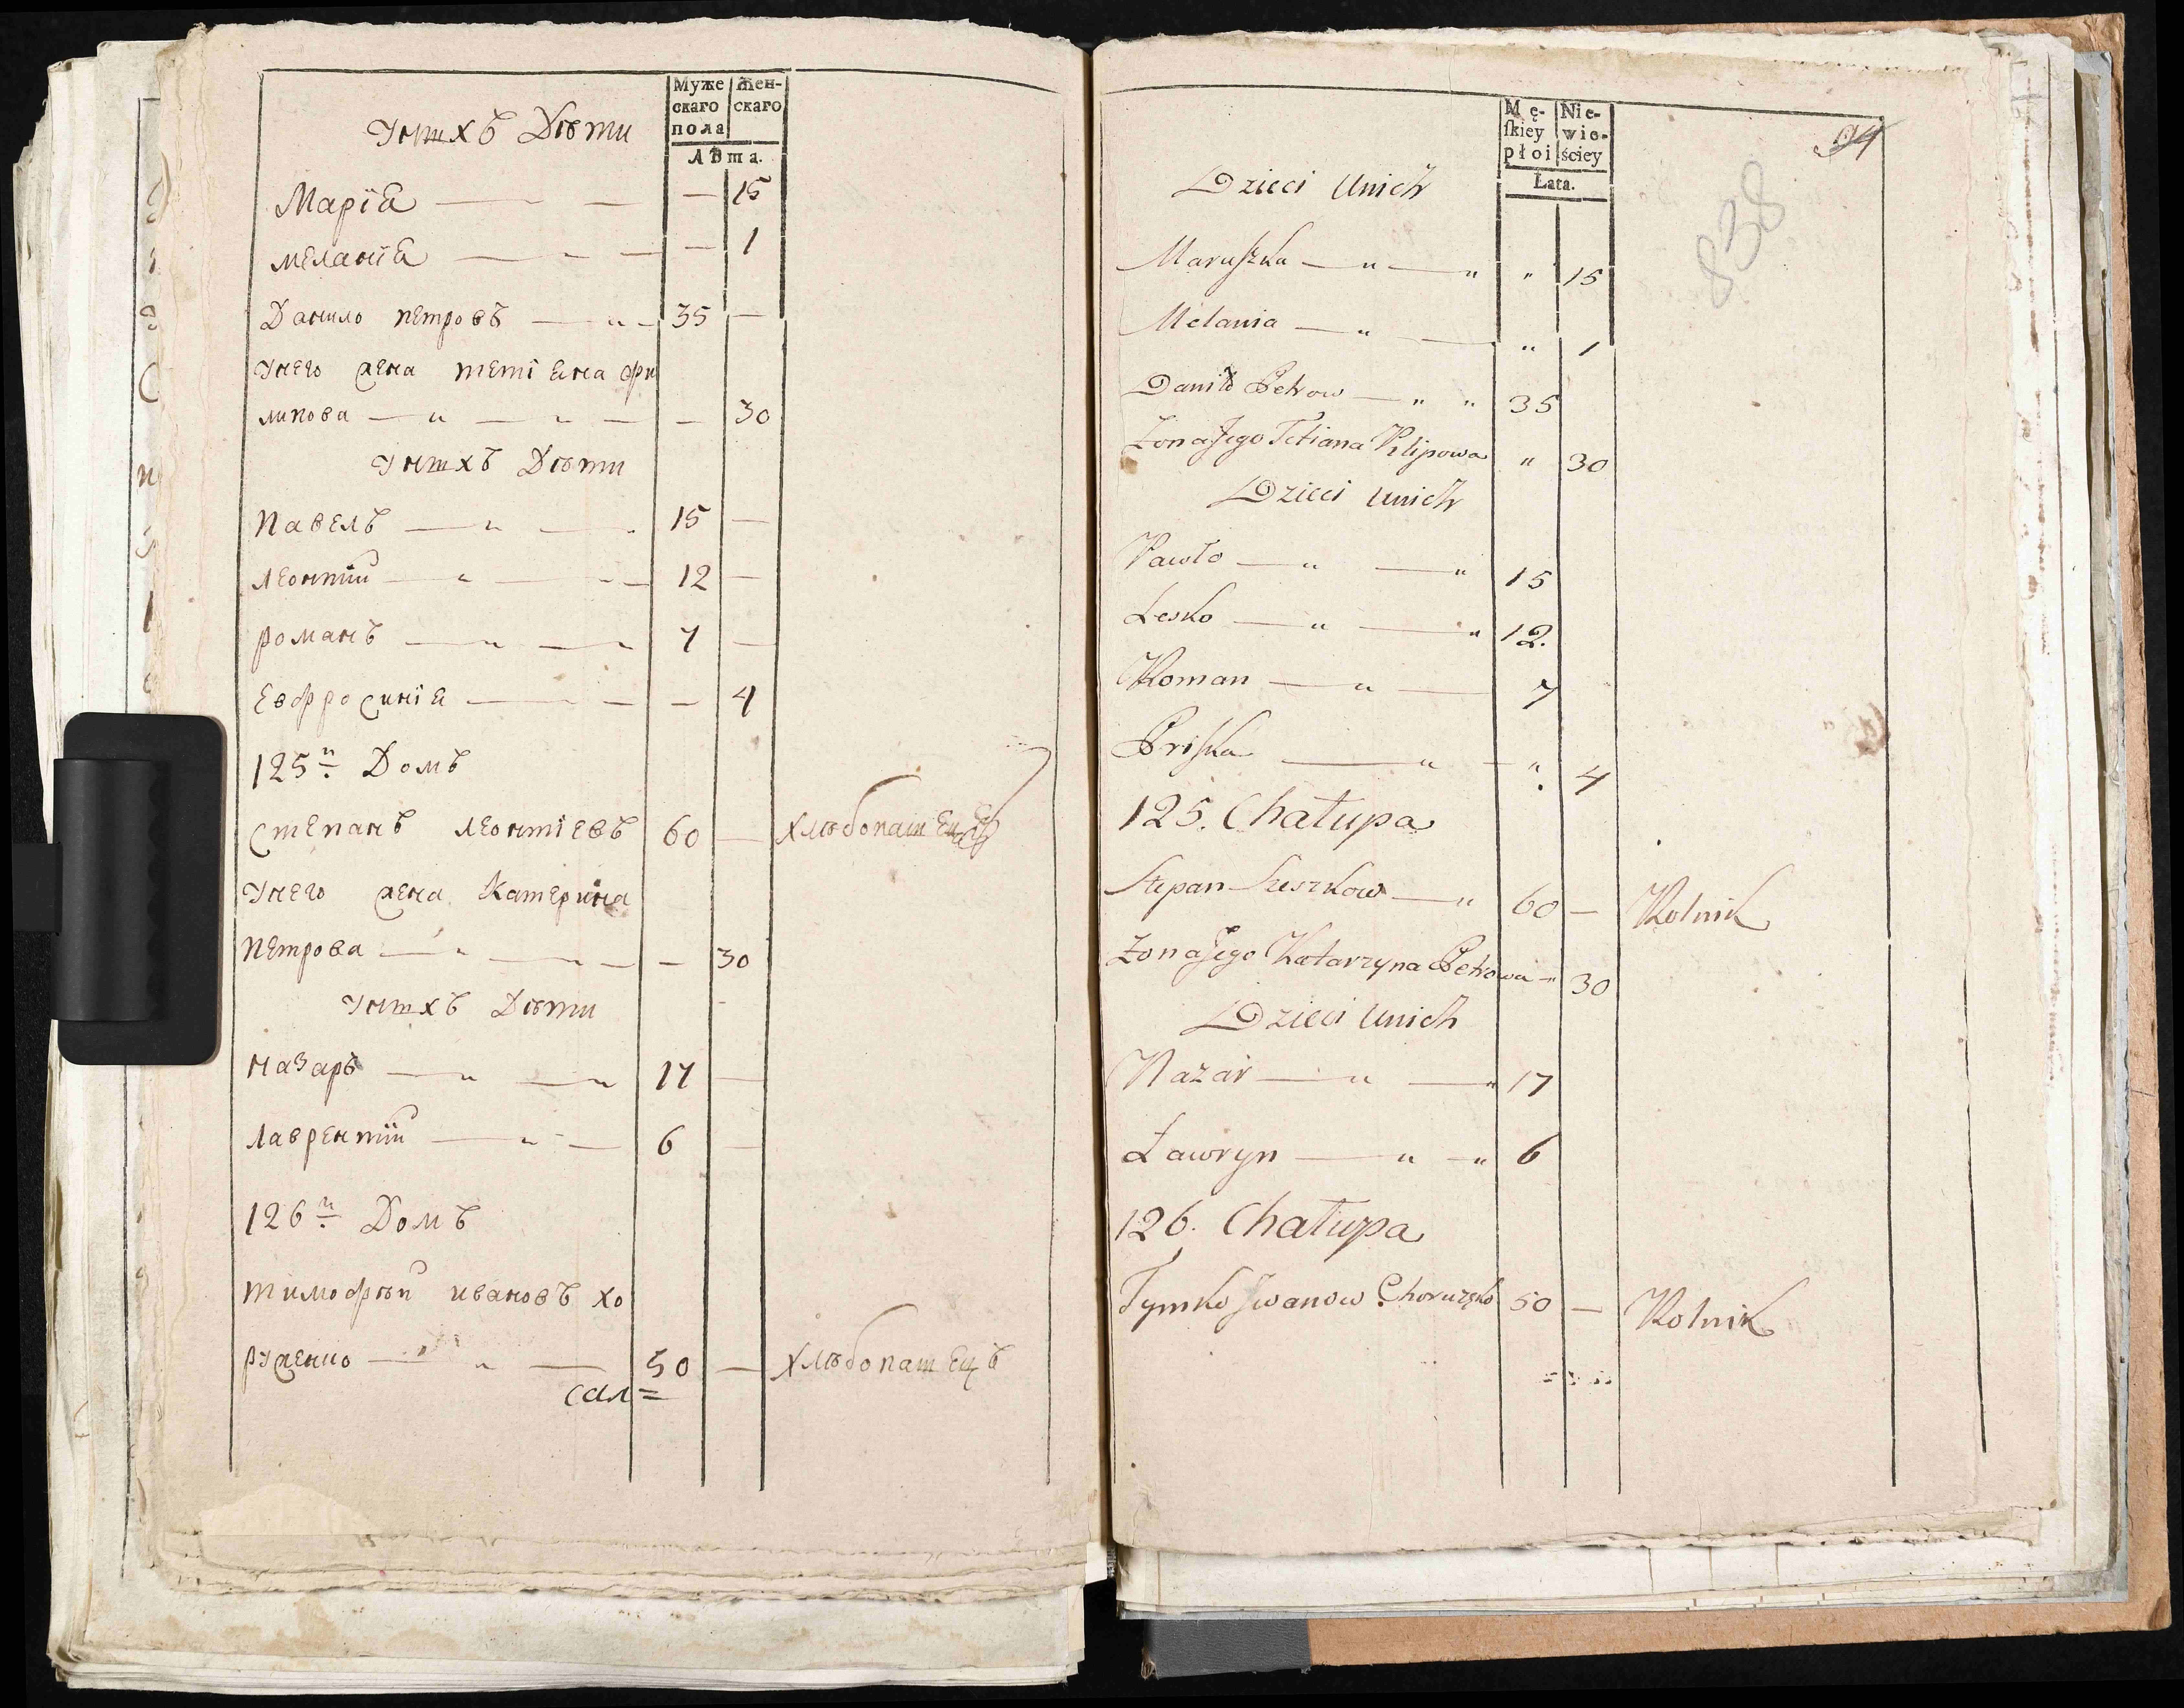 Муже
скаго
пола
Жен-
скаго
Лѣта.
Унихъ Дѣти
Маріа — — — 15
меланіа — — — 1
Данило петровъ — „ — 35 —
Унего жена тетіана фи
липова — „ — „ — — 30
Унихъ Дѣти
павелъ — „ — 15 —
леонтій — „ — 12 —
романъ — „ — „ 7 —
Евфросиніа — — — 4
125й Домъ
степанъ леонтіевъ 60 — хлѣбопашецъ
Унего жена катерина
петрова — „ — „ — — 30
Унихъ Дѣти
назаръ — „ — „ 17 —
лаврентій — „ — 6 —
126й Домъ
тимофѣй ивановъ хо
руженко — „ — 50 — хлѣбопашецъ
сал=
Mę-
ſkiey
płoi
Nie-
wie-
ściey
Łata.
94
838
Dzieci Unich
Maruſzka — „ — „ „ 15
Melania — „ — „ 1
Daniło Petrow — „ „ 35
Żona Jego Tetiana Pilipowa „ 30
Dzieci Unich
Pawło — „ — „ 15
Lesko — „ — „ 12.
Roman — „ — 7
Priſka — „ — „ 4
125. Chałupa
Stepan Leszkow — „ 60 — Rolnik
Żona Jego Katarzyna Petrowa — „ 30
Dzieci Unich
Nazar — „ — „ 17
Ławryn — „ — „ 6
126. Chałupa
Tymko Iwanow Choruzko 50 — Rolnik